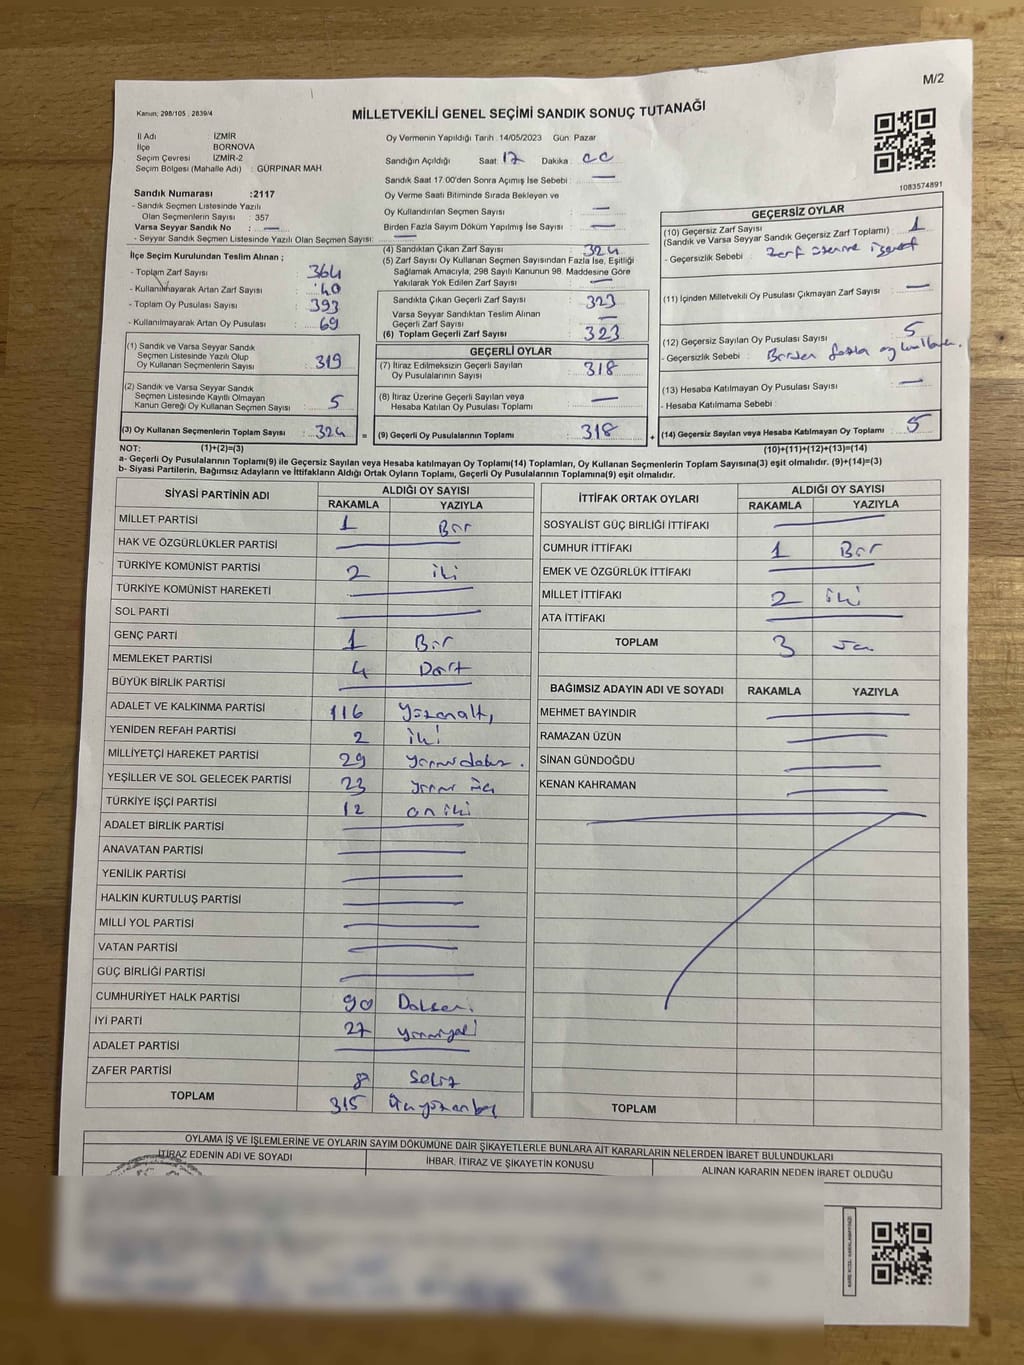 M/2
Kanun; 298/105 ; 2839/4
MİLLETVEKİLİ GENEL SEÇİMİ SANDIK SONUÇ TUTANAĞI
İl Adı İZMİR
İlçe BORNOVA
Seçim Çevresi İZMİR-2
Seçim Bölgesi (Mahalle Adı) : GÜRPINAR MAH
Sandık Numarası :2117
- Sandık Seçmen Listesinde Yazılı
Olan Seçmenlerin Sayısı : 357
Varsa Seyyar Sandık No : —
- Seyyar Sandık Seçmen Listesinde Yazılı Olan Seçmen Sayısı: —
Oy Vermenin Yapıldığı Tarih :14/05/2023 Gün: Pazar
Sandığın Açıldığı Saat: 17 Dakika:
Sandık Saat 17.00'den Sonra Açımış İse Sebebi : —
Oy Verme Saati Bitiminde Sırada Bekleyen ve
Oy Kullandırılan Seçmen Sayısı : —
Birden Fazla Sayım Döküm Yapılmış İse Sayısı : —
1083574891
İlçe Seçim Kurulundan Teslim Alınan ;
- Toplam Zarf Sayısı : 364
- Kullanılmayarak Artan Zarf Sayısı : 40
- Toplam Oy Pusulası Sayısı : 393
- Kullanılmayarak Artan Oy Pusulası : 69
(1) Sandık ve Varsa Seyyar Sandık
Seçmen Listesinde Yazılı Olup
Oy Kullanan Seçmenlerin Sayısı : 319
(2) Sandık ve Varsa Seyyar Sandık
Seçmen Listesinde Kayıtlı Olmayan
Kanun Gereği Oy Kullanan Seçmen Sayısı : 5
(3) Oy Kullanan Seçmenlerin Toplam Sayısı : 324
(4) Sandıktan Çıkan Zarf Sayısı : 324
(5) Zarf Sayısı Oy Kullanan Seçmen Sayısından Fazla İse, Eşitliği
Sağlamak Amacıyla, 298 Sayılı Kanunun 98. Maddesine Göre
Yakılarak Yok Edilen Zarf Sayısı : —
Sandıkta Çıkan Geçerli Zarf Sayısı : 323
Varsa Seyyar Sandıktan Teslim Alınan
Geçerli Zarf Sayısı : —
(6) Toplam Geçerli Zarf Sayısı : 323
GEÇERLİ OYLAR
(7) İtiraz Edilmeksizin Geçerli Sayılan
Oy Pusulalarının Sayısı : 318
(8) İtiraz Üzerine Geçerli Sayılan veya
Hesaba Katılan Oy Pusulası Toplamı : —
= (9) Geçerli Oy Pusulalarının Toplamı : 318
GEÇERSİZ OYLAR
(10) Geçersiz Zarf Sayısı : 1
(Sandık ve Varsa Seyyar Sandık Geçersiz Zarf Toplamı)
- Geçersizlik Sebebi : Zarf üzerine işaret
(11) İçinden Milletvekili Oy Pusulası Çıkmayan Zarf Sayısı : —
(12) Geçersiz Sayılan Oy Pusulası Sayısı : 5
- Geçersizlik Sebebi : Birden fazla oy
(13) Hesaba Katılmayan Oy Pusulası Sayısı : —
- Hesaba Katılmama Sebebi :
+ (14) Geçersiz Sayılan veya Hesaba Katılmayan Oy Toplamı : 5
NOT: (1)+(2)=(3) (10)+(11)+(12)+(13)=(14)
a- Geçerli Oy Pusulalarının Toplamı(9) ile Geçersiz Sayılan veya Hesaba katılmayan Oy Toplamı(14) Toplamları, Oy Kullanan Seçmenlerin Toplam Sayısına(3) eşit olmalıdır. (9)+(14)=(3)
b- Siyasi Partilerin, Bağımsız Adayların ve İttifakların Aldığı Ortak Oyların Toplamı, Geçerli Oy Pusulalarının Toplamına(9) eşit olmalıdır.
SİYASİ PARTİNİN ADI ALDIĞI OY SAYISI
RAKAMLA YAZIYLA
MİLLET PARTİSİ 1 Bir
HAK VE ÖZGÜRLÜKLER PARTİSİ —
TÜRKİYE KOMÜNİST PARTİSİ 2 iki
TÜRKİYE KOMÜNİST HAREKETİ —
SOL PARTİ —
GENÇ PARTİ 1 Bir
MEMLEKET PARTİSİ 4 Dört
BÜYÜK BİRLİK PARTİSİ —
ADALET VE KALKINMA PARTİSİ 116 Yüzonaltı
YENİDEN REFAH PARTİSİ 2 iki
MİLLİYETÇİ HAREKET PARTİSİ 29 yirmidokuz
YEŞİLLER VE SOL GELECEK PARTİSİ 23 yirmi üç
TÜRKİYE İŞÇİ PARTİSİ 12 on iki
ADALET BİRLİK PARTİSİ —
ANAVATAN PARTİSİ —
YENİLİK PARTİSİ —
HALKIN KURTULUŞ PARTİSİ —
MİLLİ YOL PARTİSİ —
VATAN PARTİSİ —
GÜÇ BİRLİĞİ PARTİSİ —
CUMHURİYET HALK PARTİSİ 90 Doksan
İYİ PARTİ 27 yirmiyedi
ADALET PARTİSİ —
ZAFER PARTİSİ 8 Sekiz
TOPLAM 315 Üçyüzonbeş
İTTİFAK ORTAK OYLARI ALDIĞI OY SAYISI
RAKAMLA YAZIYLA
SOSYALİST GÜÇ BİRLİĞİ İTTİFAKI —
CUMHUR İTTİFAKI 1 Bir
EMEK VE ÖZGÜRLÜK İTTİFAKI —
MİLLET İTTİFAKI 2 iki
ATA İTTİFAKI —
TOPLAM 3 üç
BAĞIMSIZ ADAYIN ADI VE SOYADI RAKAMLA YAZIYLA
MEHMET BAYINDIR —
RAMAZAN ÜZÜN —
SİNAN GÜNDOĞDU —
KENAN KAHRAMAN —
TOPLAM
OYLAMA İŞ VE İŞLEMLERİNE VE OYLARIN SAYIM DÖKÜMÜNE DAİR ŞİKAYETLERLE BUNLARA AİT KARARLARIN NELERDEN İBARET BULUNDUKLARI
İTİRAZ EDENİN ADI VE SOYADI İHBAR, İTİRAZ VE ŞİKAYETİN KONUSU ALINAN KARARIN NEDEN İBARET OLDUĞU